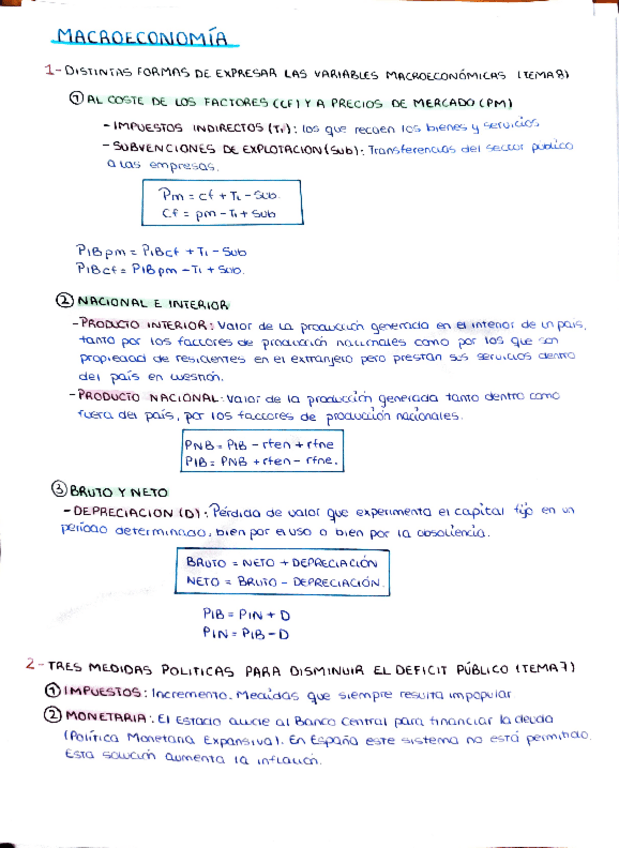 MACROECONOMÍA
1- DISTINTAS FORMAS DE EXPRESAR LAS VARIABLES MACROECONÓMICAS (TEMA 8)
① AL COSTE DE LOS FACTORES (CF) Y A PRECIOS DE MERCADO (PM)
- IMPUESTOS INDIRECTOS (Ti): los que recaen los bienes y servicios
- SUBVENCIONES DE EXPLOTACION (Sub): Transferencias del sector publico
a las empresas.
Pm = cf + Ti - Sub.
Cf = pm - Ti + Sub
PIBpm = PIBcf + Ti - Sub
PIBcf = PIBpm - Ti + Sub.
② NACIONAL E INTERIOR
- PRODUCTO INTERIOR: Valor de la producción generada en el interior de un país,
tanto por los factores de producción nacionales como por los que son
propiedad de residentes en el extranjero pero prestan sus servicios dentro
del país en cuestión.
- PRODUCTO NACIONAL: Valor de la producción generada tanto dentro como
fuera del país, por los factores de producción nacionales.
PNB = PIB - rfen + rfne
PIB = PNB + rfen - rfne.
③ BRUTO Y NETO
- DEPRECIACION (D): Pérdida de valor que experimenta el capital fijo en un
período determinado, bien por el uso o bien por la obsoliencia.
BRUTO = NETO + DEPRECIACIÓN
NETO = BRUTO - DEPRECIACIÓN.
PIB = PIN + D
PIN = PIB - D
2- TRES MEDIDAS POLITICAS PARA DISMINUIR EL DEFICIT PÚBLICO (TEMA 7)
① IMPUESTOS: Incremento. Medidas que siempre resulta impopular
② MONETARIA: El Estado aucie al Banco Central para financiar la deuda
(Política Monetaria Expansiva). En España este sistema no está permitido.
Esta solución aumenta la inflación.